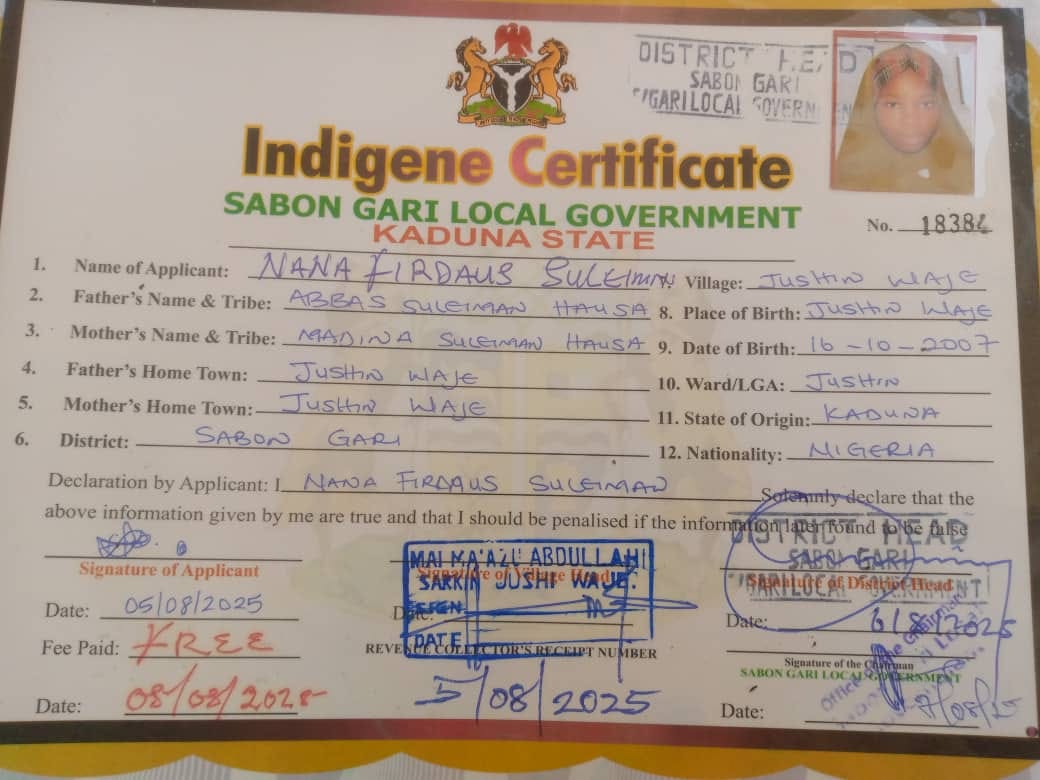 DISTRICT HEAD
SABON GARI
GARI LOCAL GOVERN
Indigene Certificate
SABON GARI LOCAL GOVERNMENT
KADUNA STATE
No. 18384
1. Name of Applicant: NANA FIRDAUS SULEIMAN Village: JUSHIN WAJE
2. Father's Name & Tribe: ABBAS SULEIMAN HAUSA 8. Place of Birth: JUSHIN WAJE
3. Mother's Name & Tribe: MADINA SULEIMAN HAUSA 9. Date of Birth: 16-10-2007
4. Father's Home Town: JUSHIN WAJE 10. Ward/LGA: JUSHIN
5. Mother's Home Town: JUSHIN WAJE 11. State of Origin: KADUNA
6. District: SABON GARI 12. Nationality: NIGERIA
Declaration by Applicant: I NANA FIRDAUS SULEIMAN Solemnly declare that the
above information given by me are true and that I should be penalised if the information later found to be false
Signature of Applicant
Date: 05/08/2025
Fee Paid: FREE
Date: 08/08/2025
MAI MA'AZU ABDULLAHI
Signature of Village Head
SARKIN JUSHI WAJE.
SIGN
Date:
DATE
REVENUE COLLECTOR'S RECEIPT NUMBER
5/08/2025
DISTRICT HEAD
SABON GARI
Signature of District Head
GARI LOCAL GOVERNMENT
Date: 6/8/2025
Signature of the Chairman
SABON GARI LOCAL GOVERNMENT
Office of the Chairman
Date: 7/08/25